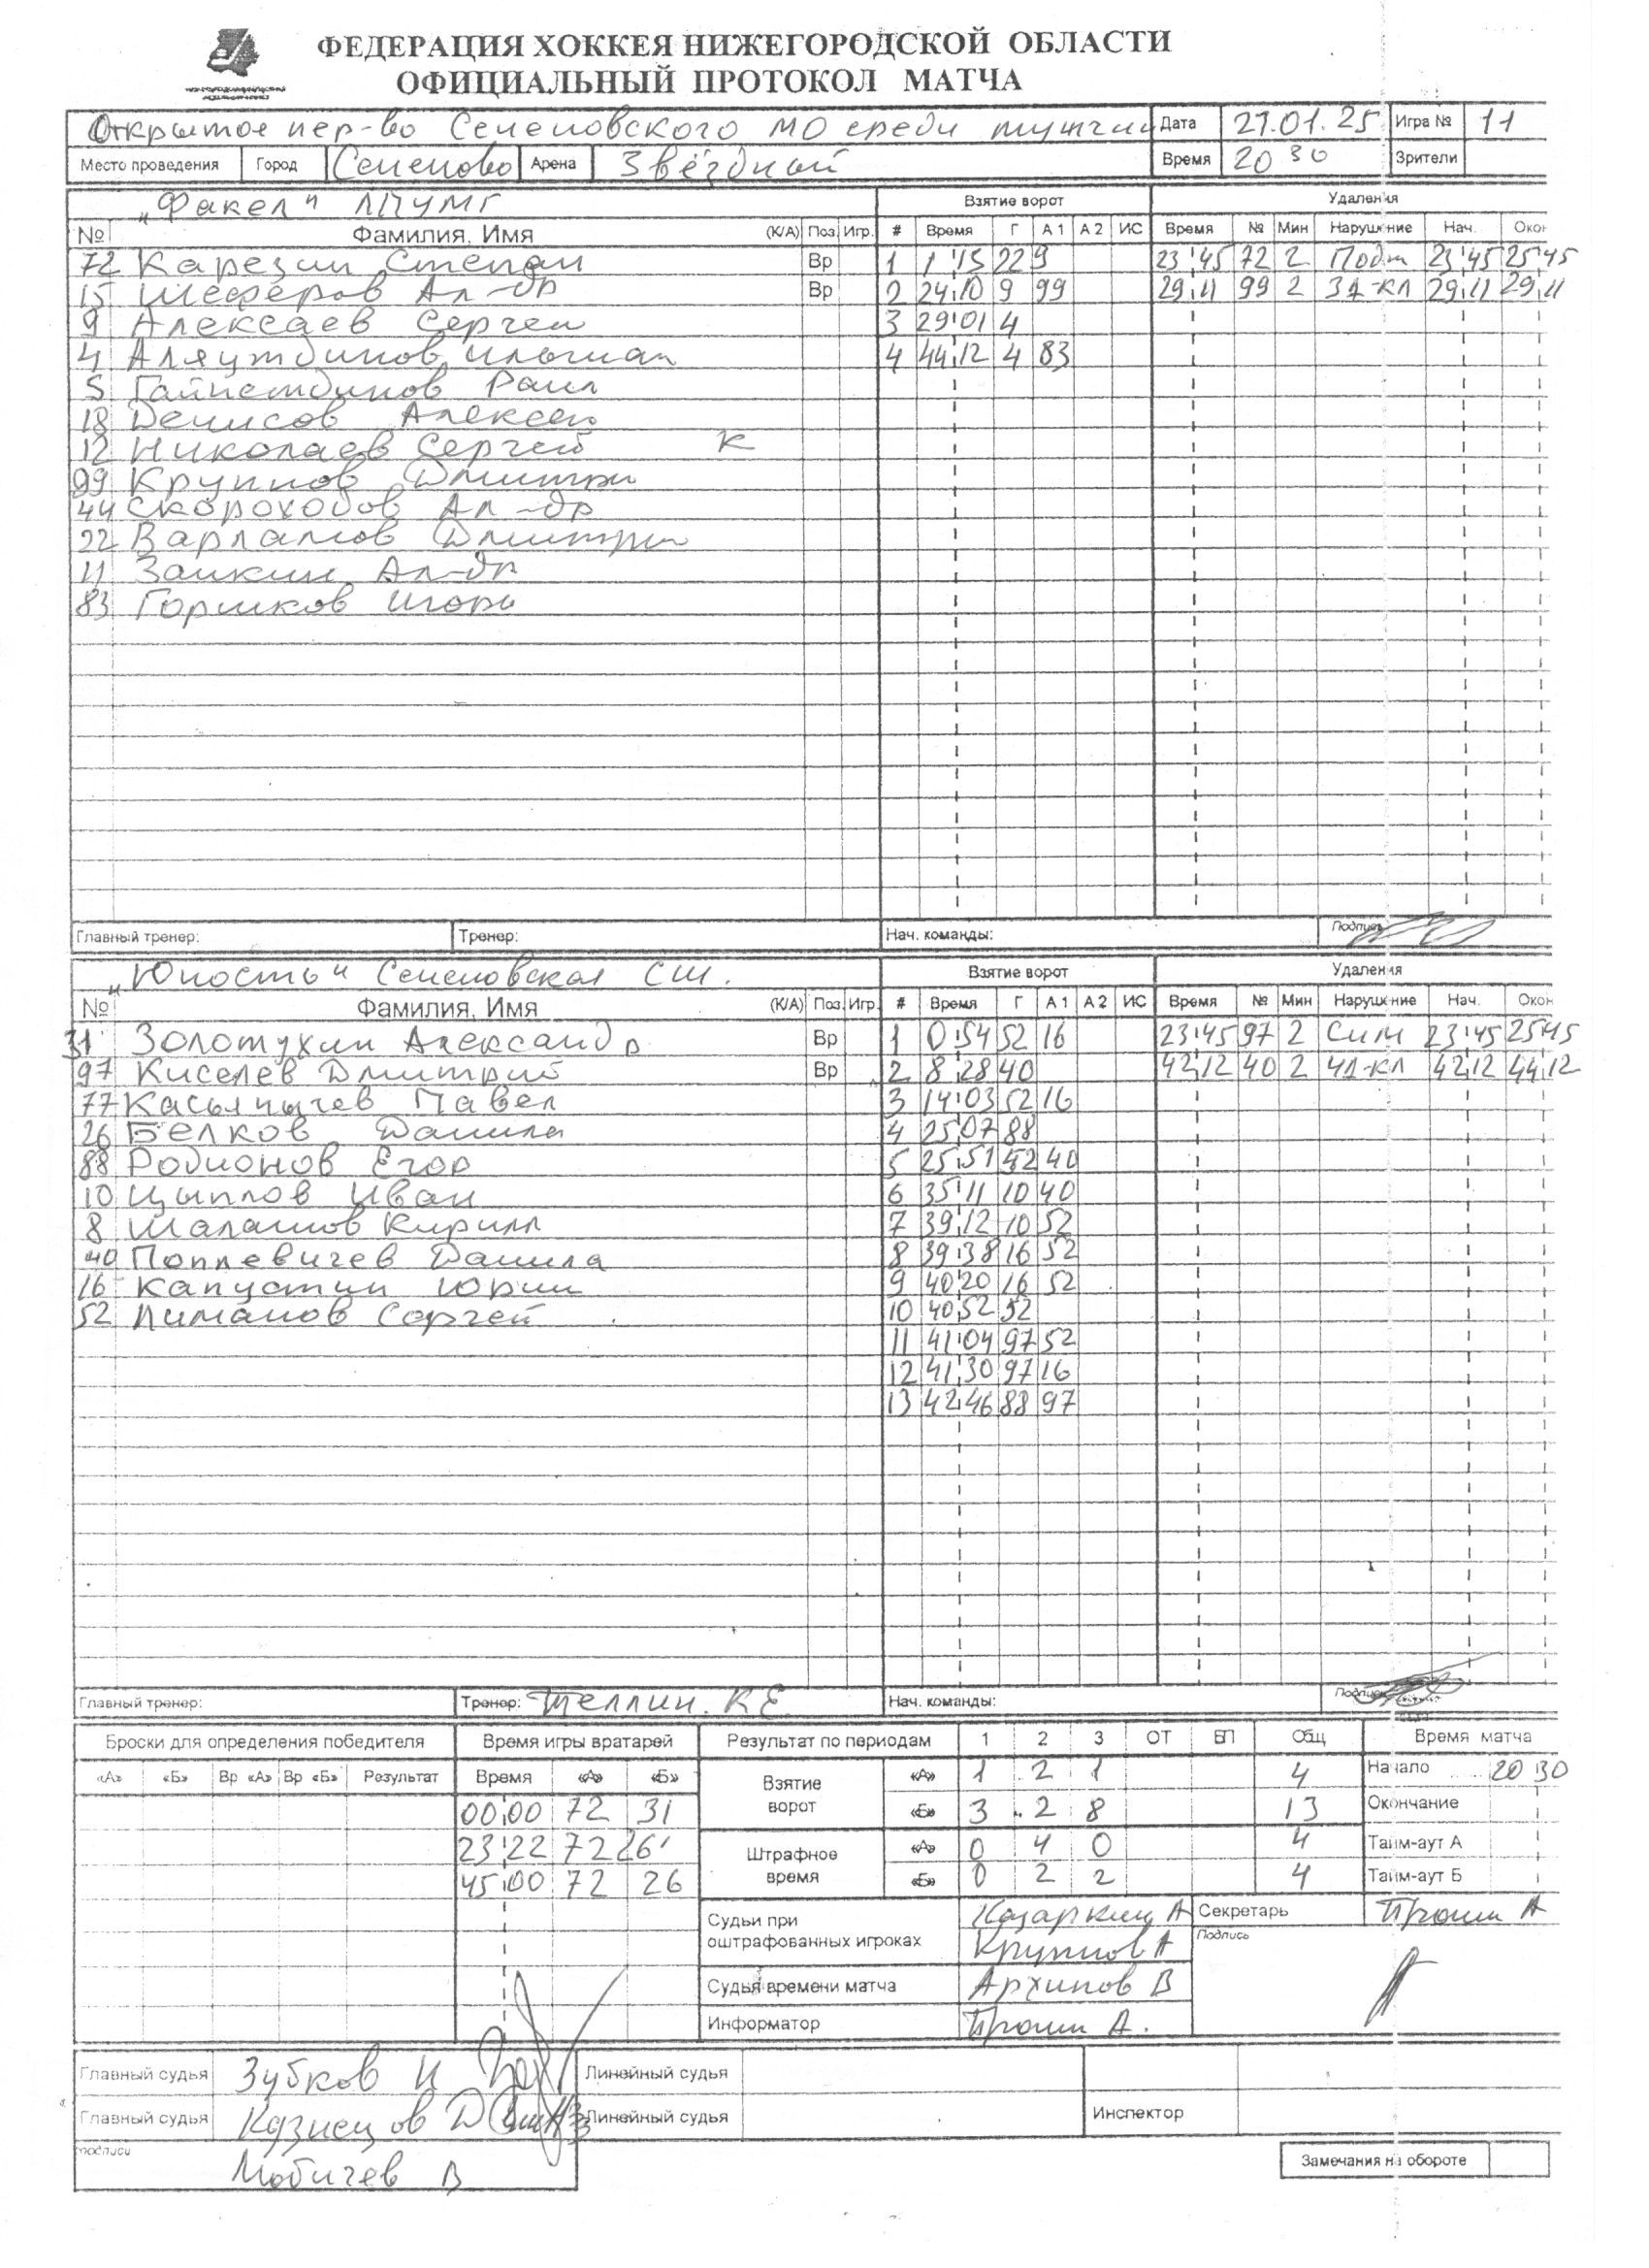 ФЕДЕРАЦИЯ ХОККЕЯ НИЖЕГОРОДСКОЙ ОБЛАСТИ
ОФИЦИАЛЬНЫЙ ПРОТОКОЛ МАТЧА
Открытое пер-во Семеновского МО среди мужчин Дата 27.01.25 Игра № 11
Место проведения Город Семеново Арена Звёздный Время 20 30 Зрители
"Факел" ЛПУМГ Взятие ворот Удаления
№ Фамилия, Имя (К/А) Поз. Игр. # Время Г А 1 А 2 ИС Время № Мин Нарушение Нач. Окон
72 Карезин Степан Вр 1 1 15 22 9 23 45 72 2 Подн 23 45 25 45
15 Шеферов Ал-др Вр 2 24 10 9 99 29 11 99 2 ЗД-КЛ 29 11 29 11
9 Алексаев Сергей 3 29 01 4
4 Аляутдинов 4 44 12 4 83
5 Гайнетдинов Раил
18 Денисов Алексей
12 Николаев Сергей К
99 Крупнов Дмитри
44 Скороходов Ал-др
22 Варламов Дмитри
11 Заикин Ал-др
83 Горшков Игорь
Главный тренер: Тренер: Нач. команды: Подпись
"Юность" Семеновская СШ. Взятие ворот Удаления
№ Фамилия, Имя (К/А) Поз. Игр. # Время Г А 1 А 2 ИС Время № Мин Нарушение Нач. Окон
31 Золотухин Александр Вр 1 0 54 52 16 23 45 97 2 Сим 23 45 25 45
97 Киселев Дмитрий Вр 2 8 28 40 42 12 40 2 ЧД-КЛ 42 12 44 12
77 Касьянычев Павел 3 14 03 52 16
26 Белков Данила 4 25 07 88
88 Родионов Егор 5 25 51 52 40
10 Цыплов Иван 6 35 11 10 40
8 Шалашов Кирилл 7 39 12 10 52
40 Поплевичев Данила 8 39 38 16 52
16 Капустин Юрии 9 40 20 16 52
52 Лиманов Сергей 10 40 52 52
11 41 04 97 52
12 41 30 97 16
13 42 46 88 97
Главный тренер: Тренер: Теллин. К.Е. Нач. команды: Подпись
Броски для определения победителя Время игры вратарей Результат по периодам 1 2 3 ОТ БП Общ Время матча
«А» «Б» Вр «А» Вр «Б» Результат Время «А» «Б» Взятие ворот «А» 1 2 1 4 Начало 20 30
00 00 72 31 «Б» 3 2 8 13 Окончание
23 22 72 26 Штрафное время «А» 0 4 0 4 Тайм-аут А
45 00 72 26 «Б» 0 2 2 4 Тайм-аут Б
Судьи при оштрафованных игроках Назаркин А Секретарь Пронин А
Крупнов А Подпись
Судья времени матча Архипов В
Информатор Пронин А.
Главный судья Зубков И Линейный судья
Главный судья Казнецов Д Линейный судья Инспектор
подписи Мобичев В
Замечания на обороте